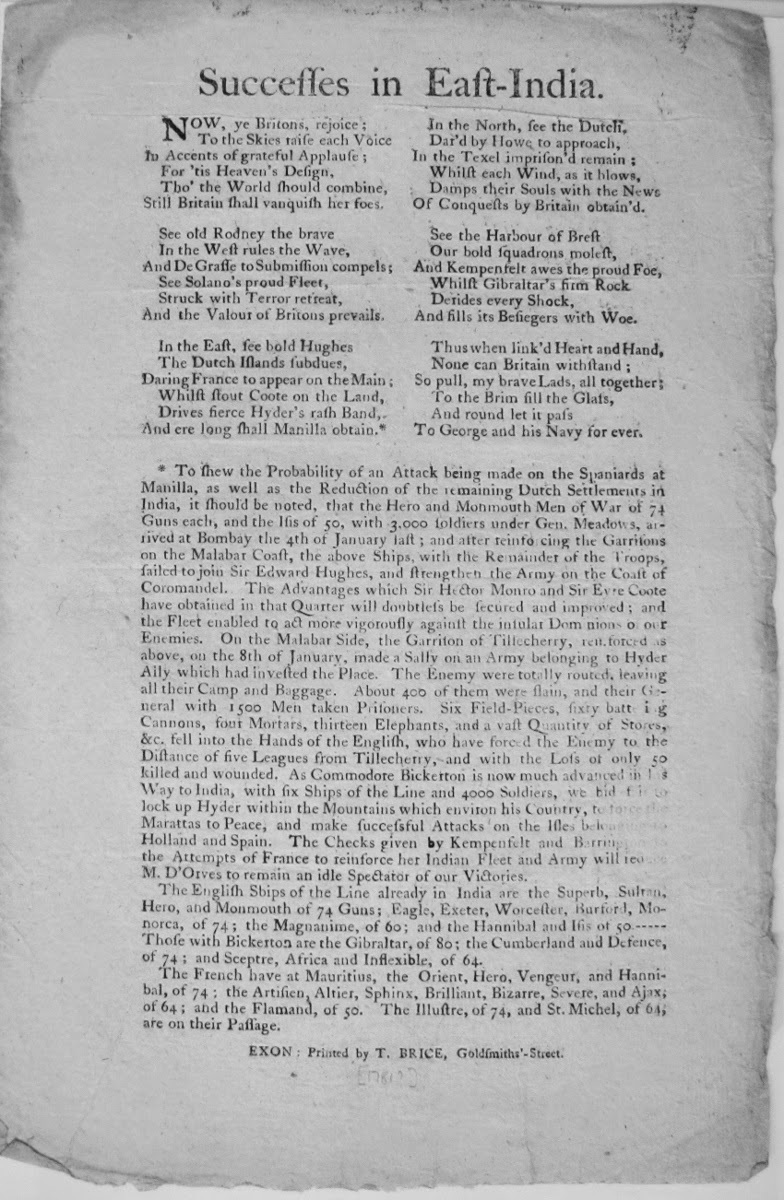 Succeſſes in Eaſt-India.
NOW, ye Britons, rejoice;
To the Skies raiſe each Voice
In Accents of grateful Applauſe;
For 'tis Heaven's Deſign,
Tho' the World ſhould combine,
Still Britain ſhall vanquiſh her foes.
See old Rodney the brave
In the Weſt rules the Wave,
And De Graſſe to Submiſſion compels;
See Solano's proud Fleet,
Struck with Terror retreat,
And the Valour of Britons prevails.
In the Eaſt, ſee bold Hughes
The Dutch Iſlands ſubdues,
Daring France to appear on the Main;
Whilſt ſtout Coote on the Land,
Drives fierce Hyder's raſh Band,
And ere long ſhall Manilla obtain.*
In the North, ſee the Dutch,
Dar'd by Howe to approach,
In the Texel impriſon'd remain;
Whilſt each Wind, as it blows,
Damps their Souls with the News
Of Conqueſts by Britain obtain'd.
See the Harbour of Breſt
Our bold ſquadrons moleſt,
And Kempenfelt awes the proud Foe,
Whilſt Gibraltar's firm Rock
Derides every Shock,
And fills its Beſiegers with Woe.
Thus when link'd Heart and Hand,
None can Britain withſtand;
So pull, my brave Lads, all together;
To the Brim fill the Glaſs,
And round let it paſs
To George and his Navy for ever.
* To ſhew the Probability of an Attack being made on the Spaniards at
Manilla, as well as the Reduction of the remaining Dutch Settlements in
India, it ſhould be noted, that the Hero and Monmouth Men of War of 74
Guns each, and the Iſis of 50, with 3,000 ſoldiers under Gen. Meadows, ar-
rived at Bombay the 4th of January laſt; and after reinfo cing the Garriſons
on the Malabar Coaſt, the above Ships, with the Remainder of the Troops,
ſailed to join Sir Edward Hughes, and ſtrengthen the Army on the Coaſt of
Coromandel. The Advantages which Sir Hector Monro and Sir Eyre Coote
have obtained in that Quarter will doubtleſs be ſecured and improved; and
the Fleet enabled to act more vigorouſly againſt the inſular Dom nions o our
Enemies. On the Malabar Side, the Garriſon of Tillecherry, ren.forced as
above, on the 8th of January, made a Sally on an Army belonging to Hyder
Ally which had inveſted the Place. The Enemy were totally routed, leaving
all their Camp and Baggage. About 400 of them were ſlain, and their Ge-
neral with 1500 Men taken Priſoners. Six Field-Pieces, ſixty batt i g
Cannons, four Mortars, thirteen Elephants, and a vaſt Quantity of Stores,
&c. fell into the Hands of the Engliſh, who have forced the Enemy to the
Diſtance of five Leagues from Tillecherry, and with the Loſs of only 50
killed and wounded. As Commodore Bickerton is now much advanced in
Way to India, with ſix Ships of the Line and 4000 Soldiers, we bid
lock up Hyder within the Mountains which environ his Country, to force the
Marattas to Peace, and make ſucceſsful Attacks on the Iſles
Holland and Spain. The Checks given by Kempenfelt and
the Attempts of France to reinforce her Indian Fleet and Army will
M. D'Orves to remain an idle Spectator of our Victories.
The Engliſh Ships of the Line already in India are the Superb, Sultan,
Hero, and Monmouth of 74 Guns; Eagle, Exeter, Worceſter, Burford, Mo-
norca, of 74; the Magnanime, of 60; and the Hannibal and Iſis of 50.-----
Thoſe with Bickerton are the Gibraltar, of 80; the Cumberland and Defence,
of 74; and Sceptre, Africa and Inflexible, of 64.
The French have at Mauritius, the Orient, Hero, Vengeur, and Hanni-
bal, of 74; the Artiſien, Altier, Sphinx, Brilliant, Bizarre, Severe, and Ajax,
of 64; and the Flamand, of 50. The Illuſtre, of 74, and St. Michel, of 64,
are on their Paſſage.
EXON: Printed by T. BRICE, Goldſmiths'-Street.